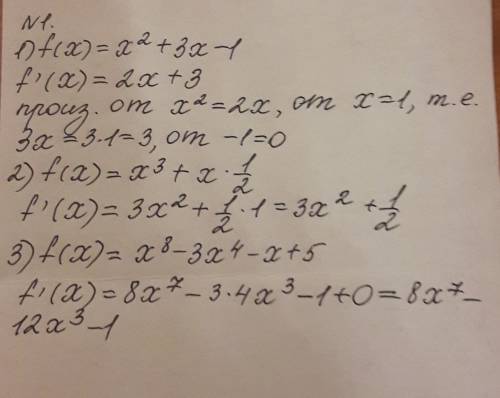 N1.
1) f(x) = x² + 3x - 1
f'(x) = 2x + 3
произ. от x² = 2x, от x = 1, т.е.
3x = 3·1 = 3, от -1 = 0
2) f(x) = x³ + x · 1/2
f'(x) = 3x² + 1/2 · 1 = 3x² + 1/2
3) f(x) = x⁸ - 3x⁴ - x + 5
f'(x) = 8x⁷ - 3·4x³ - 1 + 0 = 8x⁷ -
12x³ - 1